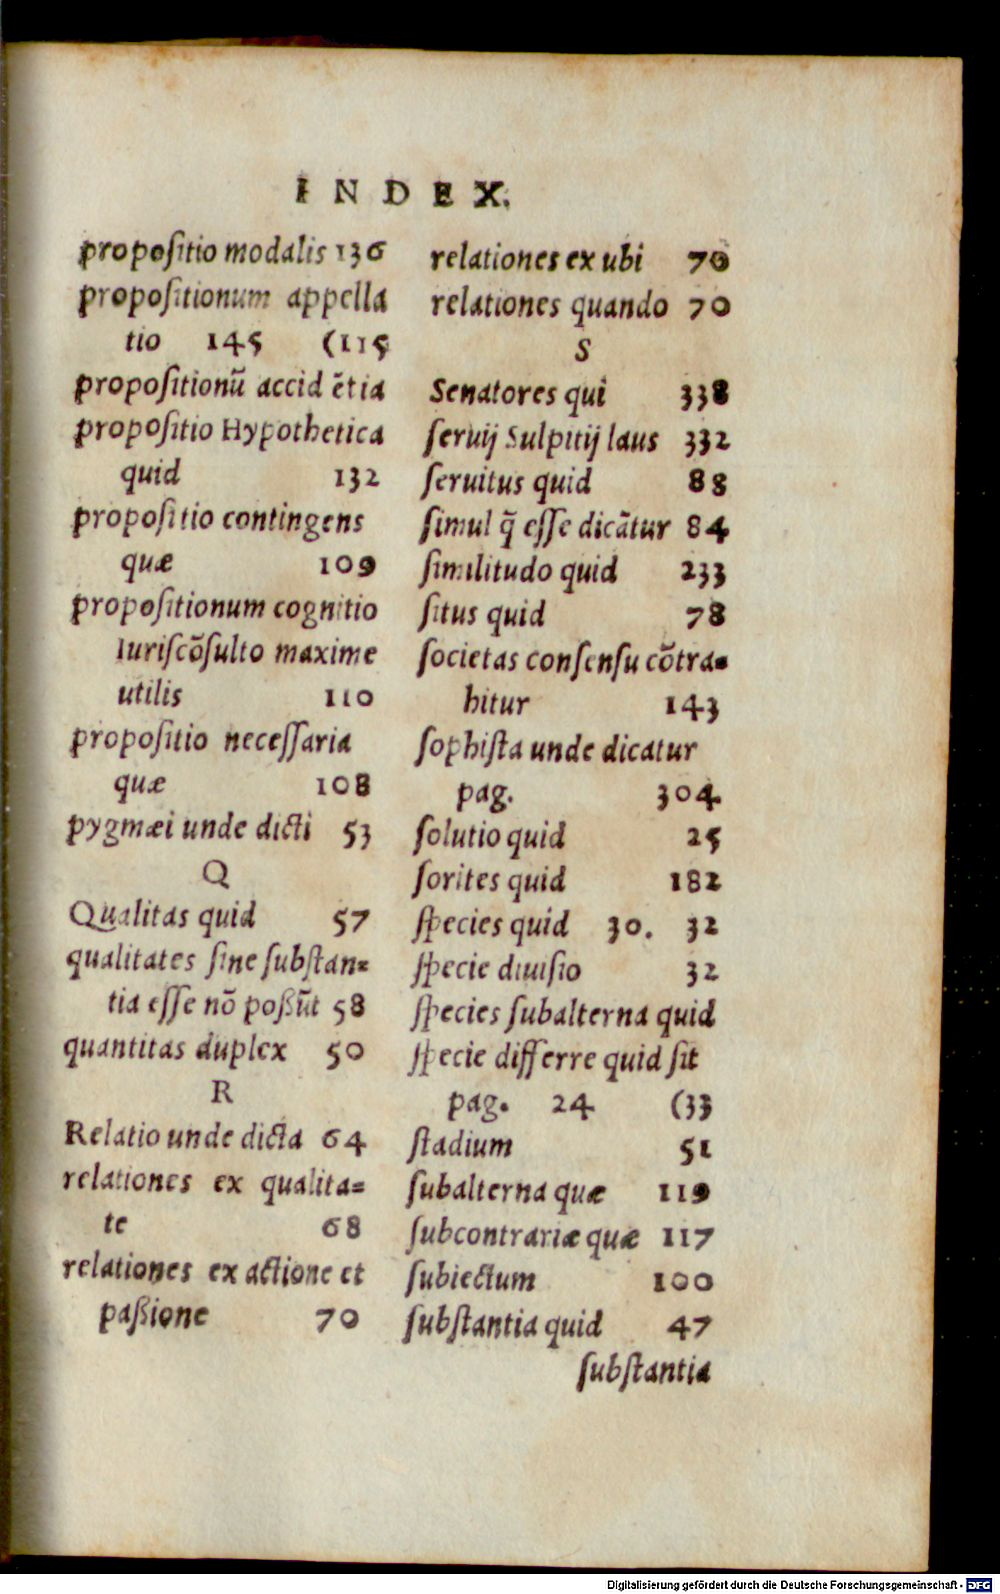 INDEX.
propoſitio modalis 136
propoſitionum appella
tio 145 (115
propoſitionū accid ētia
propoſitio Hypothetica
quid 132
propoſitio contingens
quæ 109
propoſitionum cognitio
Iuriſcōſulto maxime
utilis 110
propoſitio neceſſaria
quæ 108
pygmæi unde dicti 53
Q
Qualitas quid 57
qualitates ſine ſubſtan=
tia eſſe nō poßūt 58
quantitas duplex 50
R
Relatio unde dicta 64
relationes ex qualita=
te 68
relationes ex actione et
paßione 70
relationes ex ubi 70
relationes quando 70
S
Senatores qui 338
ſeruij Sulpitij laus 332
ſeruitus quid 88
ſimul q̄ eſſe dicātur 84
ſimilitudo quid 233
ſitus quid 78
ſocietas conſenſu cōtra=
hitur 143
ſophiſta unde dicatur
pag. 304
ſolutio quid 25
ſorites quid 182
ſpecies quid 30. 32
ſpecie diuiſio 32
ſpecies ſubalterna quid
ſpecie differre quid ſit
pag. 24 (33
ſtadium 51
ſubalterna quæ 119
ſubcontrariæ quæ 117
ſubiectum 100
ſubſtantia quid 47
ſubſtantia
Digitalisierung gefördert durch die Deutsche Forschungsgemeinschaft - DFG